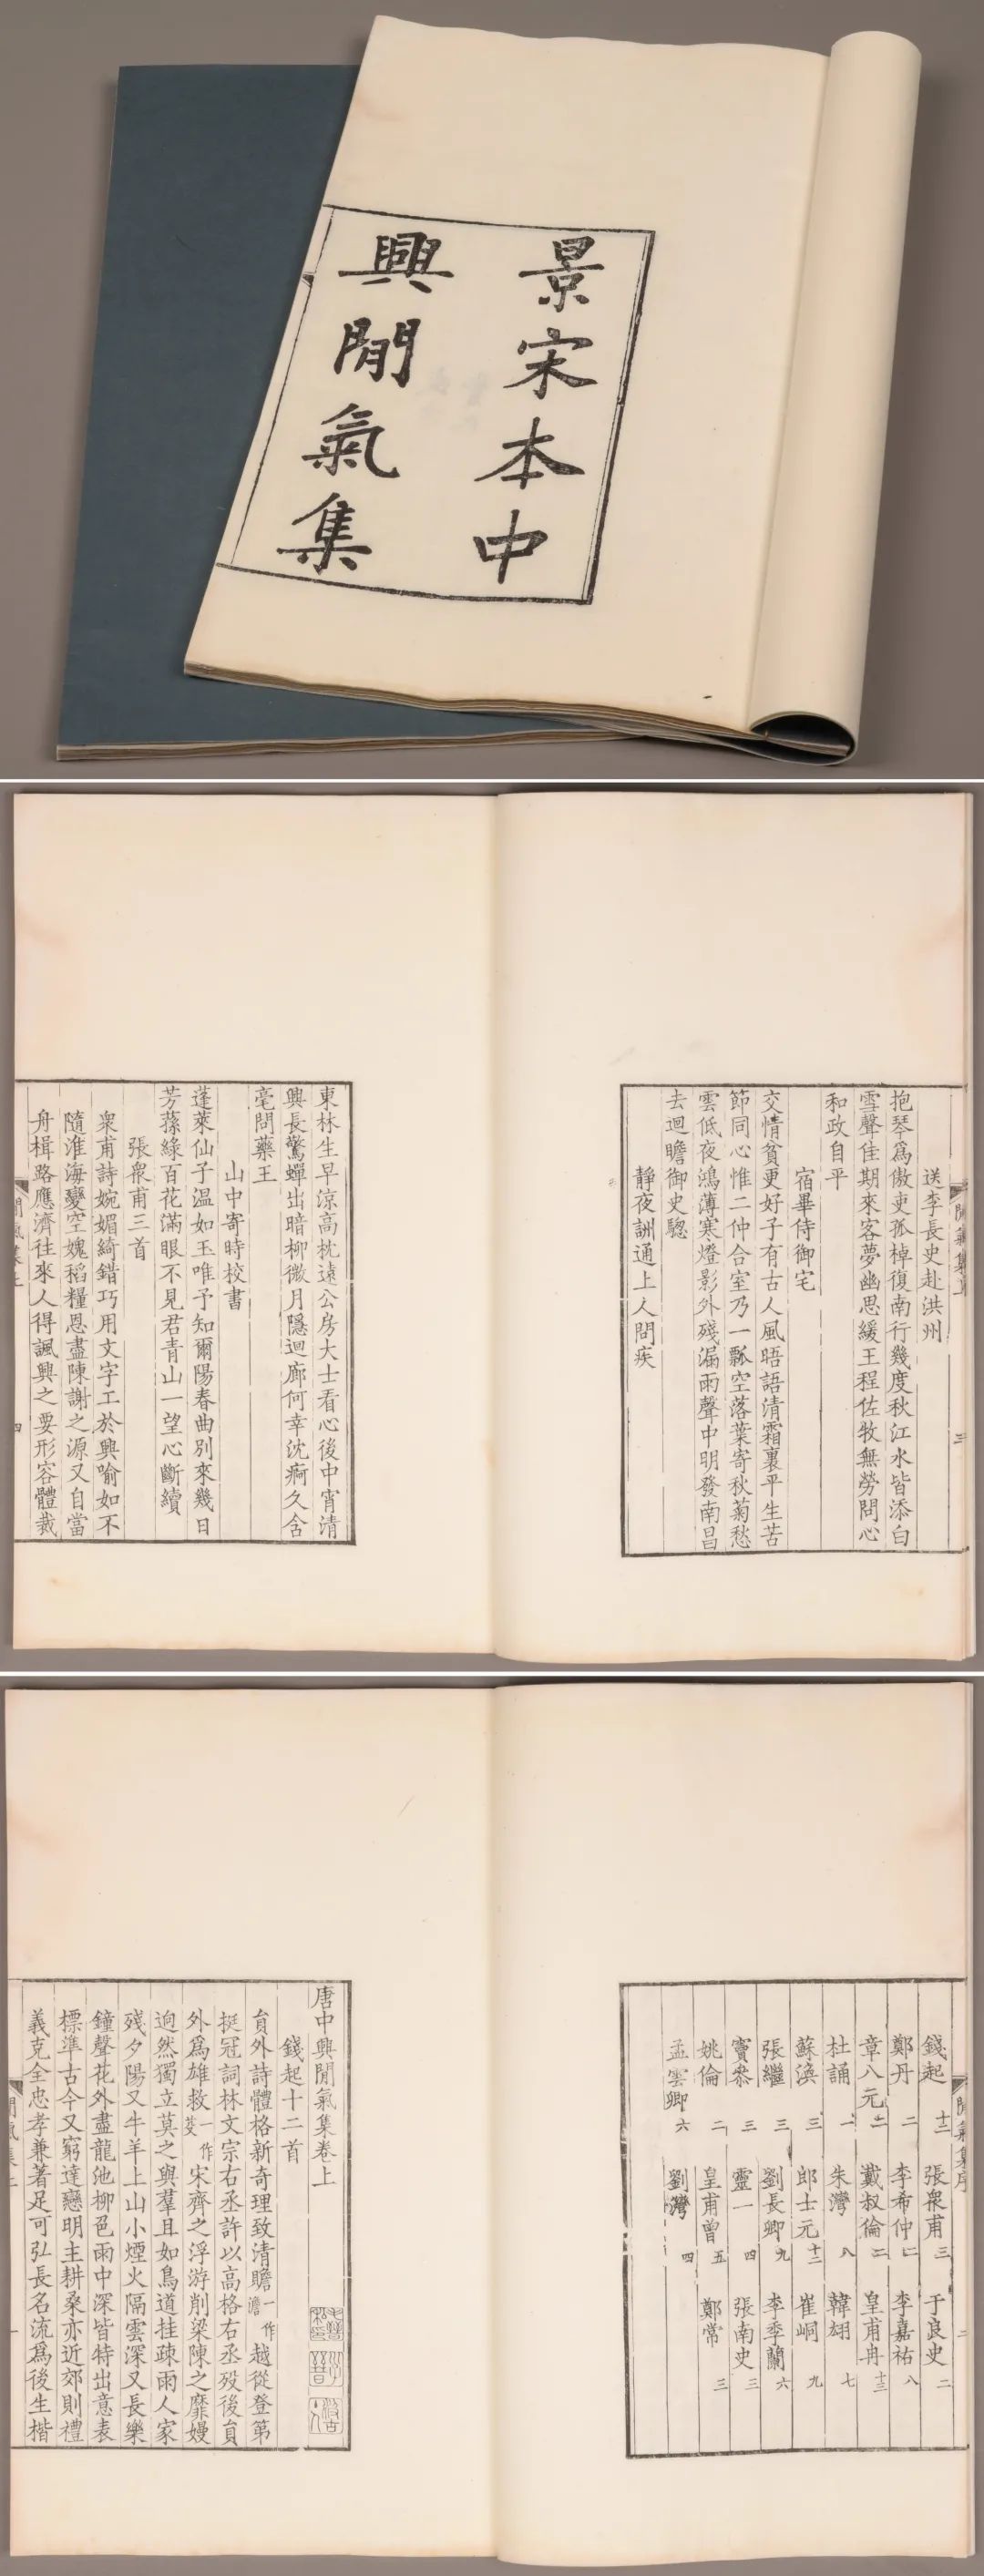 景宋本中
興閒氣集
送李長史赴洪州
抱琴爲傲吏孤棹復南行幾度秋江水皆添白
雪聲佳期來客夢幽思緩王程佐牧無勞問心
和政自平
宿畢侍御宅
交情貧更好子有古人風晤語清霜裏平生苦
節同心惟二仲合室乃一瓢空落葉寄秋菊愁
雲低夜鴻薄寒燈影外殘漏雨聲中明發南昌
去迴瞻御史驄
靜夜詶通上人問疾
東林生早涼高枕遠公房大士看心後中宵清
興長驚蟬出暗柳微月隱迴廊何幸沈痾久含
毫問藥王
山中寄時校書
蓬萊仙子溫如玉唯予知爾陽春曲別來幾日
芳蓀綠百花滿眼不見君青山一望心斷續
張衆甫三首
衆甫詩婉媚綺錯巧用文字工於興喻如不
隨淮海變空媿稻糧恩盡陳謝之源又自當
舟楫路應濟往來人得諷興之要形容體裁
四
閒氣集序
錢起 十二 張衆甫 三 于良史 二
鄭丹 二 李希仲 二 李嘉祐 八
章八元 二 戴叔倫 二 皇甫冉 十三
杜誦 一 朱灣 八 韓翃 七
蘇渙 三 郎士元 十二 崔峒 九
張繼 三 劉長卿 九 李季蘭 六
竇叅 三 靈一 四 張南史 三
姚倫 二 皇甫曾 五 鄭常 三
孟雲卿 六 劉灣 四
唐中興閒氣集卷上
錢起十二首
貟外詩體格新奇理致清贍一作澹越從登第
挺冠詞林文宗右丞許以高格右丞歿後貟
外爲雄救一作芟宋齊之浮游削梁陳之靡嫚
逈然獨立莫之與羣且如鳥道挂疎雨人家
殘夕陽又牛羊上山小煙火隔雲深又長樂
鐘聲花外盡龍池柳色雨中深皆特出意表
標準古今又窮達戀明主耕桑亦近郊則禮
義克全忠孝兼著足可弘長名流爲後生楷